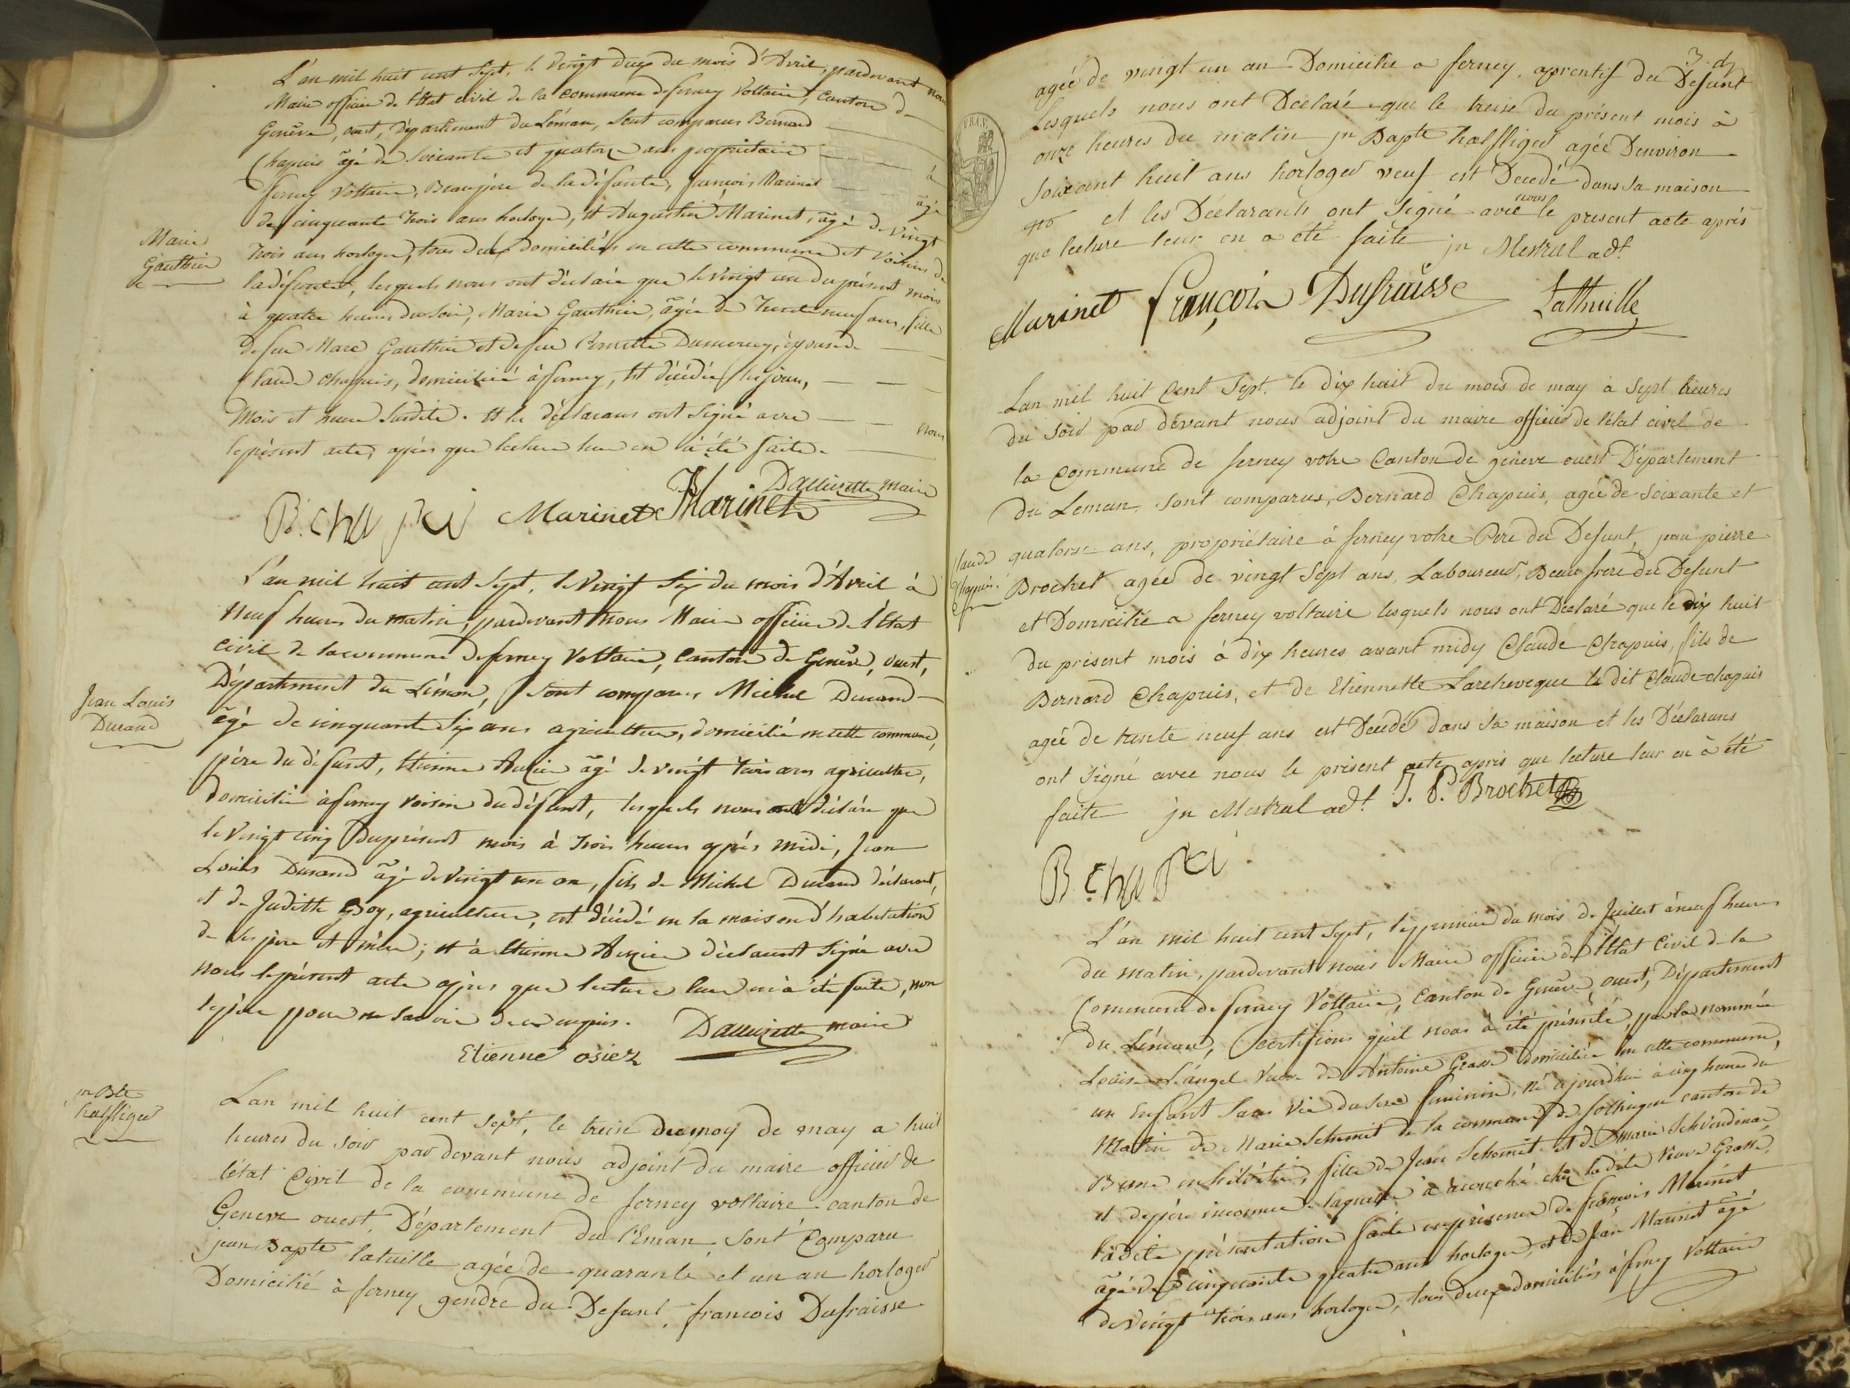 L'an mil huit cent sept, le vingt deux du mois d'Avril, pardevant nous
Maire officier de l'Etat civil de la commune de ferney Voltaire, Canton de
Genève, ouest, Département du Léman, sont comparus Bernard
Chapuis âgé de soixante et quatorze ans propriétaire à
ferney Voltaire, Beaupère de la défunte, francois Marinet âgé
de cinquante trois ans horloger, et Augustin Marinet, âgé de vingt
trois ans horloger, tous deux domiciliés en cette commune et voisins de
la défunte, lesquels nous ont déclaré que le vingt un du présent mois
à quatre heures du soir, Marie Gauthier, âgée de trente neuf ans, fille
de feu Marc Gauthier et de feu Pernette, épouse de
Claude Chapuis, domicilié à ferney, est décédée les jour,
mois et heure susdite. et les déclarans ont signé avec nous
le présent acte, après que lecture leur en a été faite.
Marie
Gauthier
B. chapui Marinet Marinet
maire
L'an mil huit cent sept, le vingt six du mois d'Avril à
neuf heures du matin, pardevant nous Maire officier de l'Etat
civil de la commune de ferney Voltaire, Canton de Genève, ouest,
Département du Léman, sont comparus Michel Durand
âgé de cinquante six ans agriculteur, domicilié en cette commune,
père du défunt, Etienne âgé de vingt trois ans agriculteur,
domicilié à ferney voisin du défunt, lesquels nous ont déclaré que
le vingt cinq du présent mois à trois heures après midi, Jean
Louis Durand âgé de vingt un an, fils de Michel Durand déclarant,
et de Judith, agriculteur, est décédé en la maison d'habitation
de ses père et mère; et à Etienne déclarant signé avec
nous le présent acte après que lecture leur en a été faite, non
le père pour ne savoir de ce enquis.
Jean Louis
Durand
maire
Etienne osiez
jn Bte
halffliger
Lan mil huit cent sept, le treise du moy de may a huit
heures du soir par devant nous adjoint du maire officier de
l'état Civil de la commune de ferney voltaire canton de
Geneve ouest, Département du Léman, sont Comparu
jean Bapte latuille agée de quarante et un an horloger
Domicilié à ferney gendre du Defunt, francois Dufraisse
agée de vingt un an Domicilie a ferney, aprentif du Defunt
Lesquels nous ont Declaré que le treise du présent mois à
onze heures du matin jn Bapte halffliger agée Denviron
soixsant huit ans horloger veuf est Decedé dans sa maison
et les Declarants ont signé avec nous le present acte après
que lecture leur en a eté faite jn Mestral adt.
Marinet françois Dufraisse Lathuille
Lan mil huit Cent sept. le dix huit du mois de may à sept heures
du soir par devant nous adjoint du maire officier de l'état civil de
la Commune de ferney votre Canton de géneve ouest Département
du Leman, sont comparus, Bernard Chapuis, agée de soixante et
quatorse ans, propriétaire à ferney votre Pere du Defunt, jean pierre
Brochet agée de vingt sept ans, Laboureur, Beau frere du Defunt
et Domicilié a ferney voltaire lesquels nous ont Declaré que le dix huit
du présent mois à dix heures avant midy Claude Chapuis, fils de
Bernard Chapuis, et de Etiennette Larcheveque le dit Claude chapuis
agée de trente neuf ans est Decedé dans sa maison et les Déclarans
ont signé avec nous le présent acte, apris que lecture leur en à été
faite jn Mestral adt. J. P. Brochet
Claude
Chapuis.
B. chapui
L'an mil huit cent sept, le premier du mois de Juillet à neuf heures
du matin, pardevant nous Maire officier de l'Etat Civil de la
Commune de ferney Voltaire, Canton de Genève, ouest, Département
du Léman, certifions qu'il nous à été présenté, par la nommée
Louise Langel veuve de Antoine Grasse domiciliée en cette commune,
un Enfant sans vie du sexe féminin, né aujourd'hui à cinq heures du
matin de Marie Schmit de la commune de canton de
Berne en helvétie, fille de Jean Schmit et de Marie
et de père inconnu, laquelle à accouché chez la dite veuve Grasse,
la dite présentation faite en présence de françois Marinet
âgé de cinquante quatre ans horloger, et de Jean Marinet âgé
de vingt trois ans horloger, tous deux domiciliés à ferney Voltaire